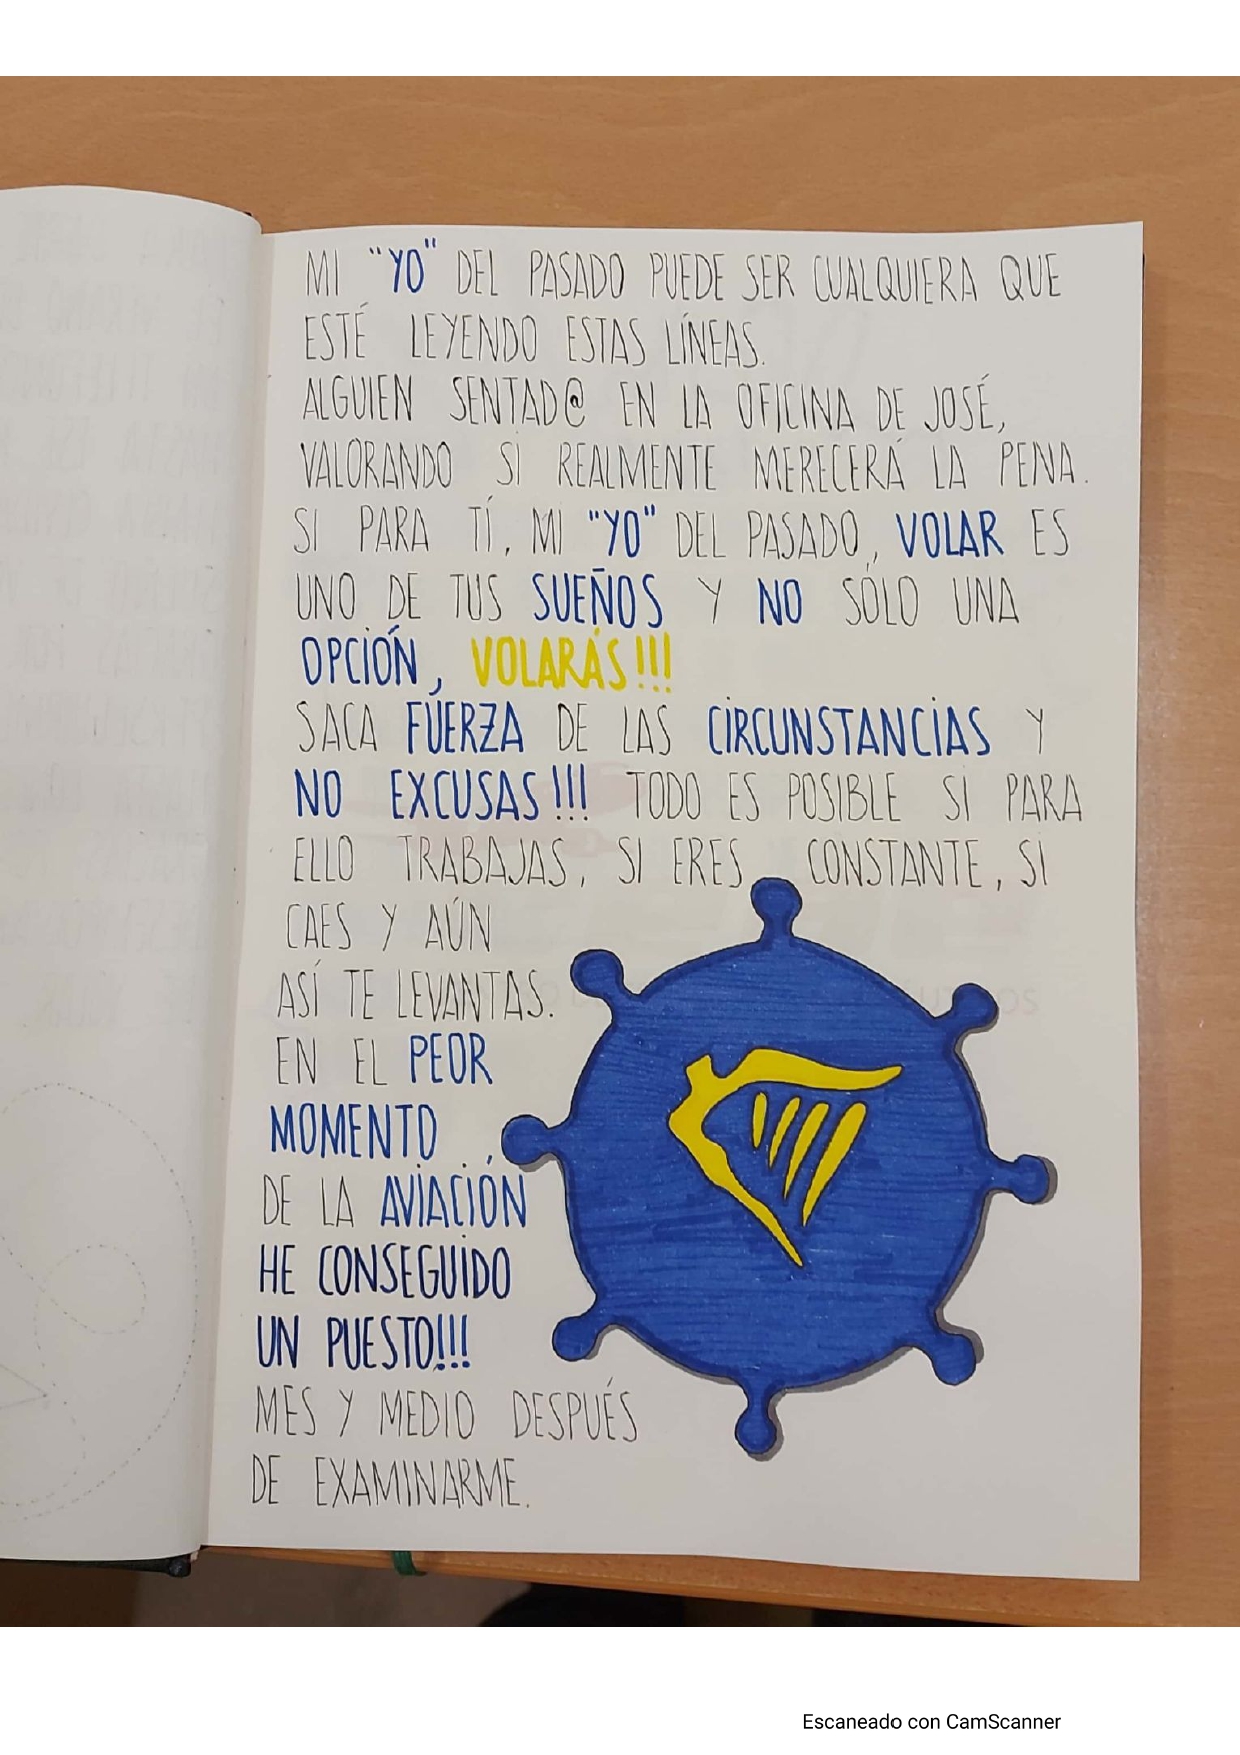 MI "YO" DEL PASADO PUEDE SER CUALQUIERA QUE
ESTÉ LEYENDO ESTAS LÍNEAS.
ALGUIEN SENTAD@ EN LA OFICINA DE JOSÉ,
VALORANDO SI REALMENTE MERECERÁ LA PENA.
SI PARA TÍ, MI "YO" DEL PASADO, VOLAR ES
UNO DE TUS SUEÑOS Y NO SÓLO UNA
OPCIÓN, VOLARÁS!!!
SACA FUERZA DE LAS CIRCUNSTANCIAS Y
NO EXCUSAS!!! TODO ES POSIBLE SI PARA
ELLO TRABAJAS, SI ERES CONSTANTE, SI
CAES Y AÚN
ASÍ TE LEVANTAS.
EN EL PEOR
MOMENTO
DE LA AVIACIÓN,
HE CONSEGUIDO
UN PUESTO!!!
MES Y MEDIO DESPUÉS
DE EXAMINARME.
Escaneado con CamScanner